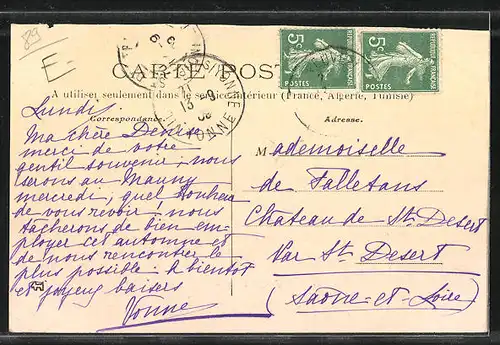 89
E-
CARTE POSTALE
5c 5c
POSTES POSTES
A utiliser seulement dans le service intérieur (France, Algérie, Tunisie)
Correspondance.
Adresse.
Lundi.
Ma chère Denise
merci de votre
gentil souvenir; nous
serons au Mauny
mercredi; quel bonheur
de vous revoir! nous
tâcherons de bien em-
ployer cet automne et
de nous rencontrer le
plus possible. A bientôt
et joyeux baisers
Yonne
Mademoiselle
de Falletans
Chateau de St Désert
par St Désert
(Saône-et-Loire)